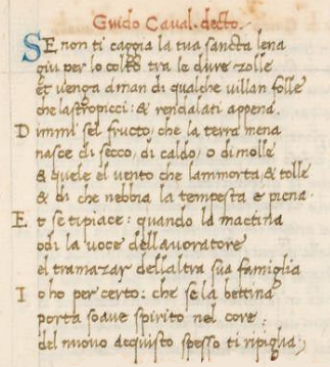 Guido Caval. decto.
SE non ti caggia la tua sancta lena
giu per lo colto tra le dure zolle
et uenga aman di qualche uillan folle
che lastropicci: & rendalati appena.
Dimmi sel fructo, che la terra mena
nasce di secco, di caldo, o di molle
& quel e el uento che lammorta, & tolle
& di che nebbia la tempesta e piena.
Et se ti piace: quando la mactina
odi la uoce dellauoratore
el tramazar dellaltra sua famiglia
Io ho per certo: che se la bettina
porta soaue spirito nel core:
del nuouo acquisto spesso ti ripiglia;